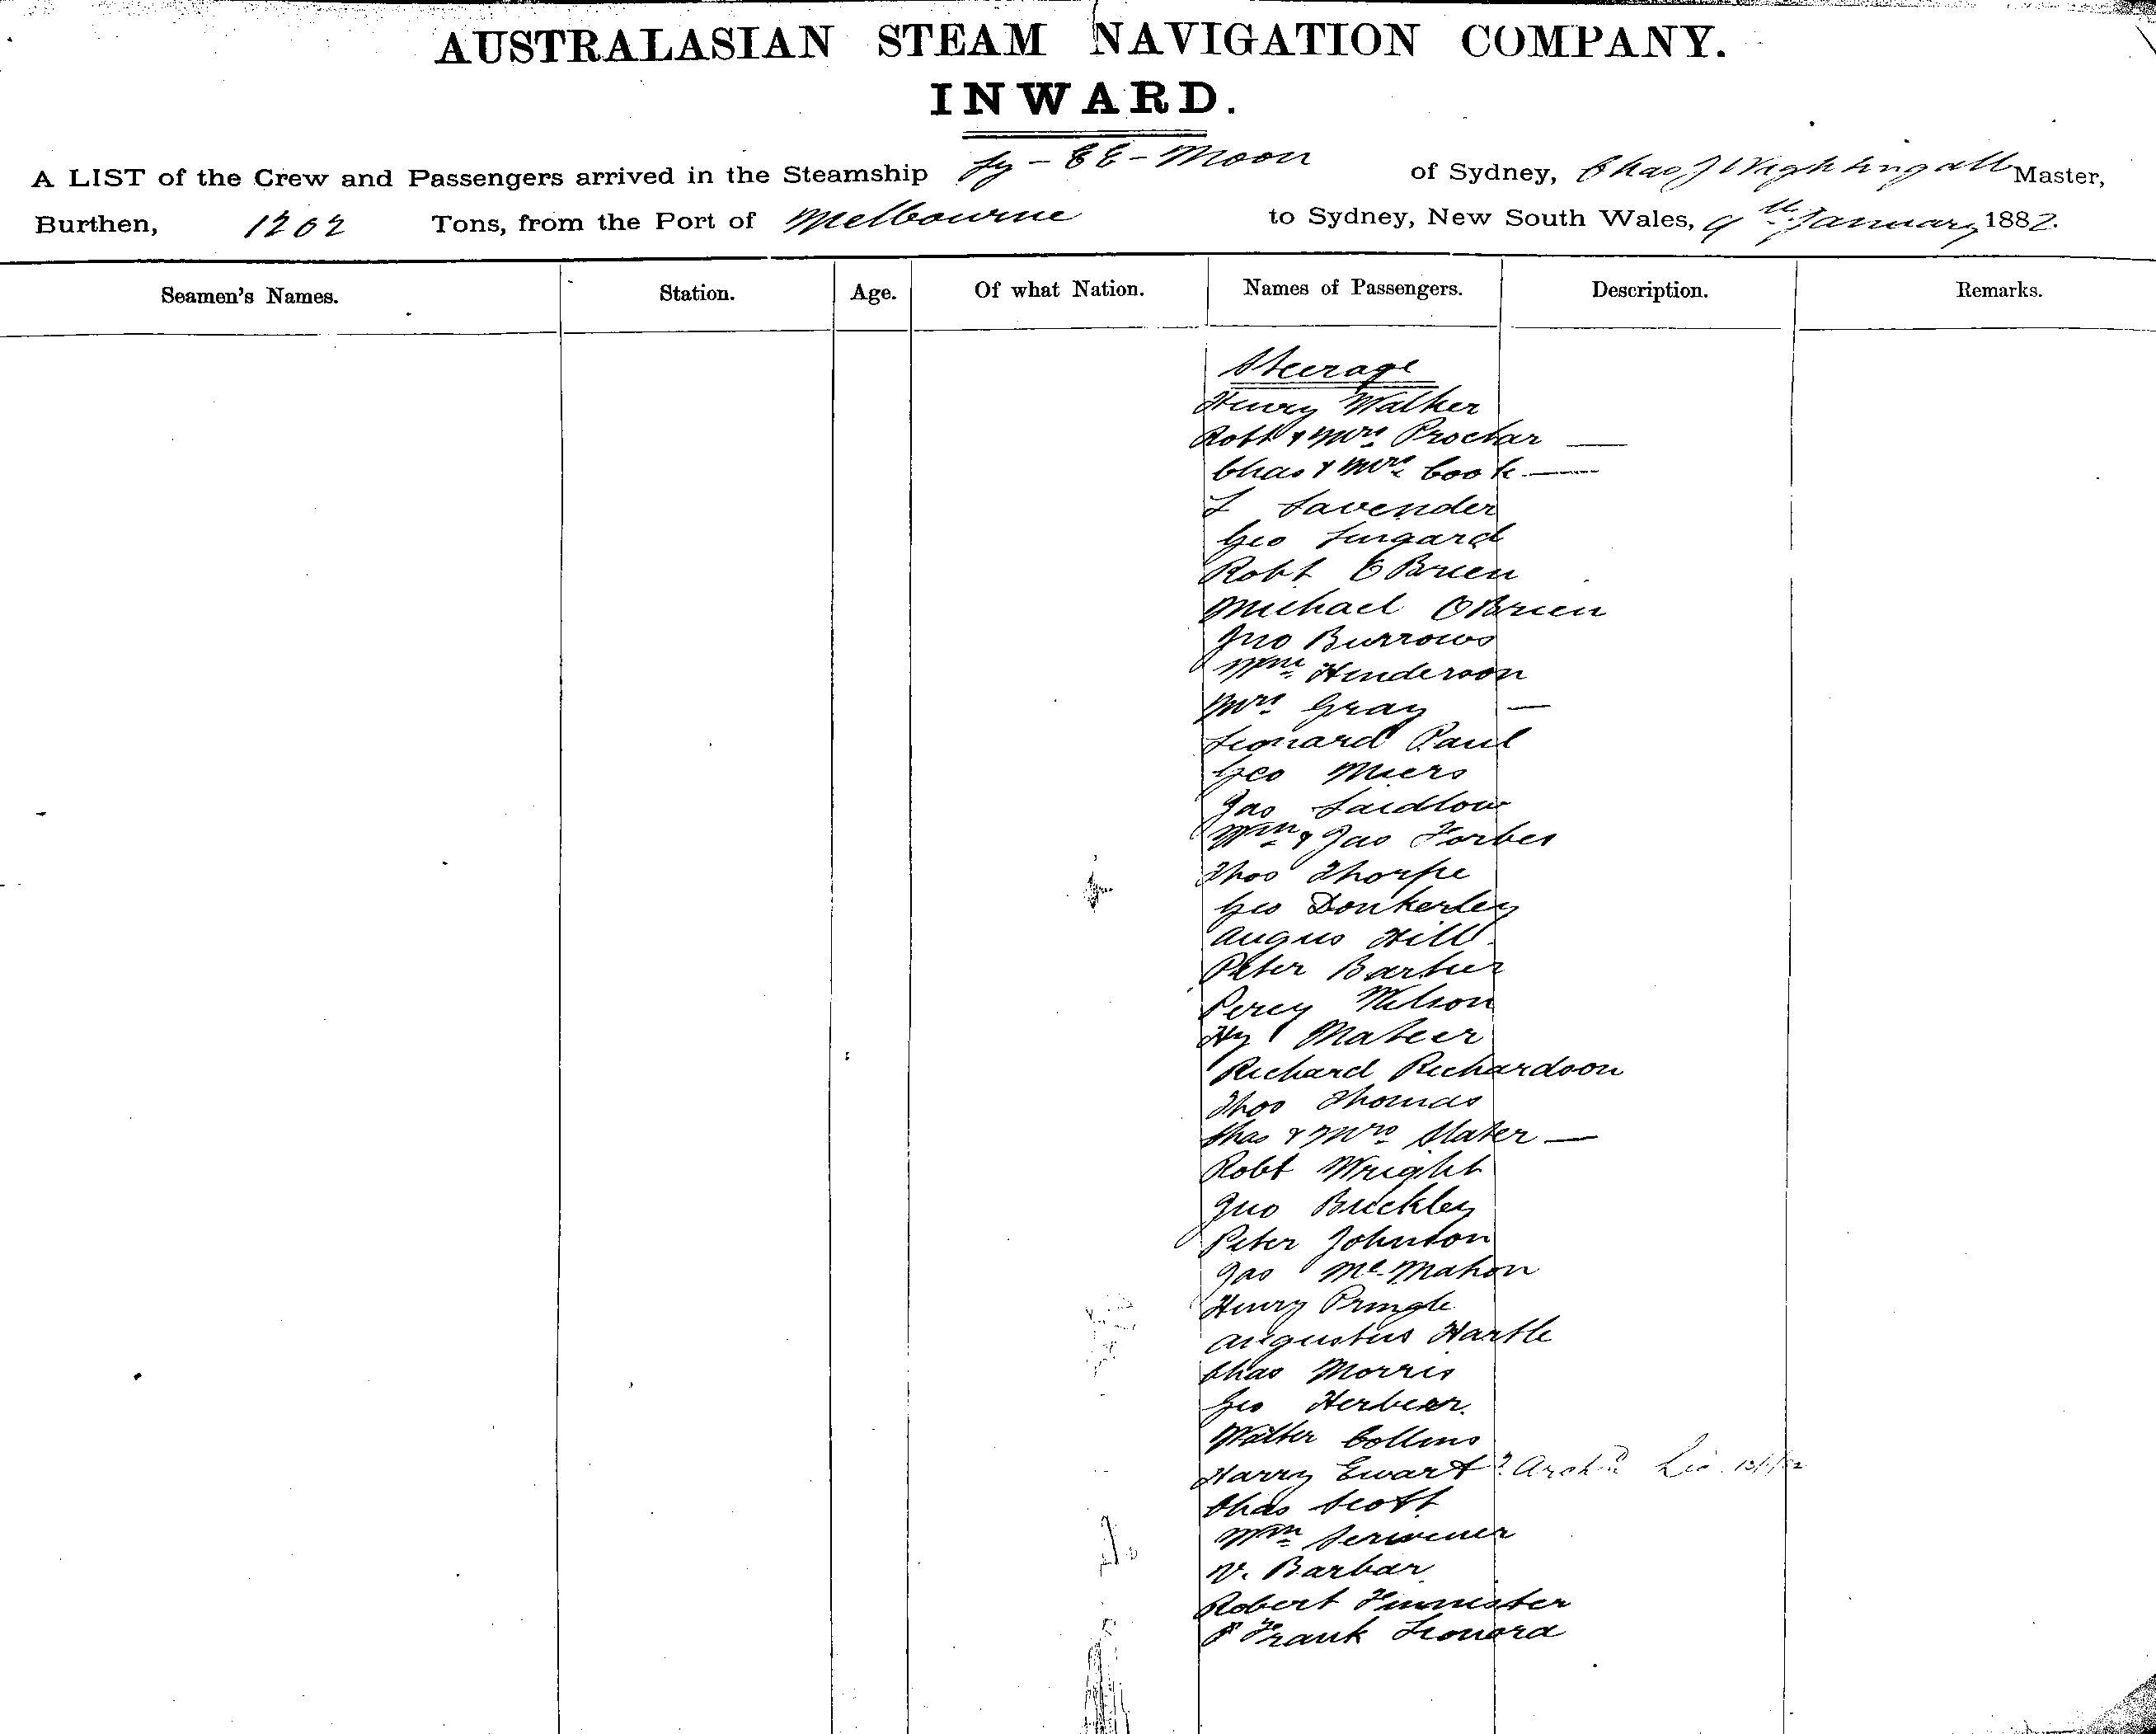 AUSTRALASIAN STEAM NAVIGATION COMPANY.
INWARD.
A LIST of the Crew and Passengers arrived in the Steamship Ly-EE-Moon of Sydney, Chas J Nightingall Master,
Burthen, 1202 Tons, from the Port of Melbourne to Sydney, New South Wales, 9th January 1882.
Seamen's Names. Station. Age. Of what Nation. Names of Passengers. Description. Remarks.
Steerage
Henry Walker
Robt & Mrs Proctar —
Chas & Mrs Cook —
L Lavender
Geo Lingard
Robt OBrien
Michael OBrien
Jno Burrows
Wm Henderson
Mrs Gray —
Leonard Paul
Geo Miers
Jas Laidlow
Wm & Jas Forbes
Thos Thorpe
Geo Donkerley
Angus Hill
Peter Barber
Percy Wilson
Hy Mateer
Richard Richardson
Thos Thomas
Chas & Mrs Slater —
Robt Wright
Jno Buckley
Peter Johnston
Jas McMahon
Henry Pringle
Augustus Hartle
Chas Morris
Geo Herbeer.
Walter Collins
Harry Ewart ?
Chas Scott
Wm Scrivener
V. Barbar
Robert
Frank Leonard